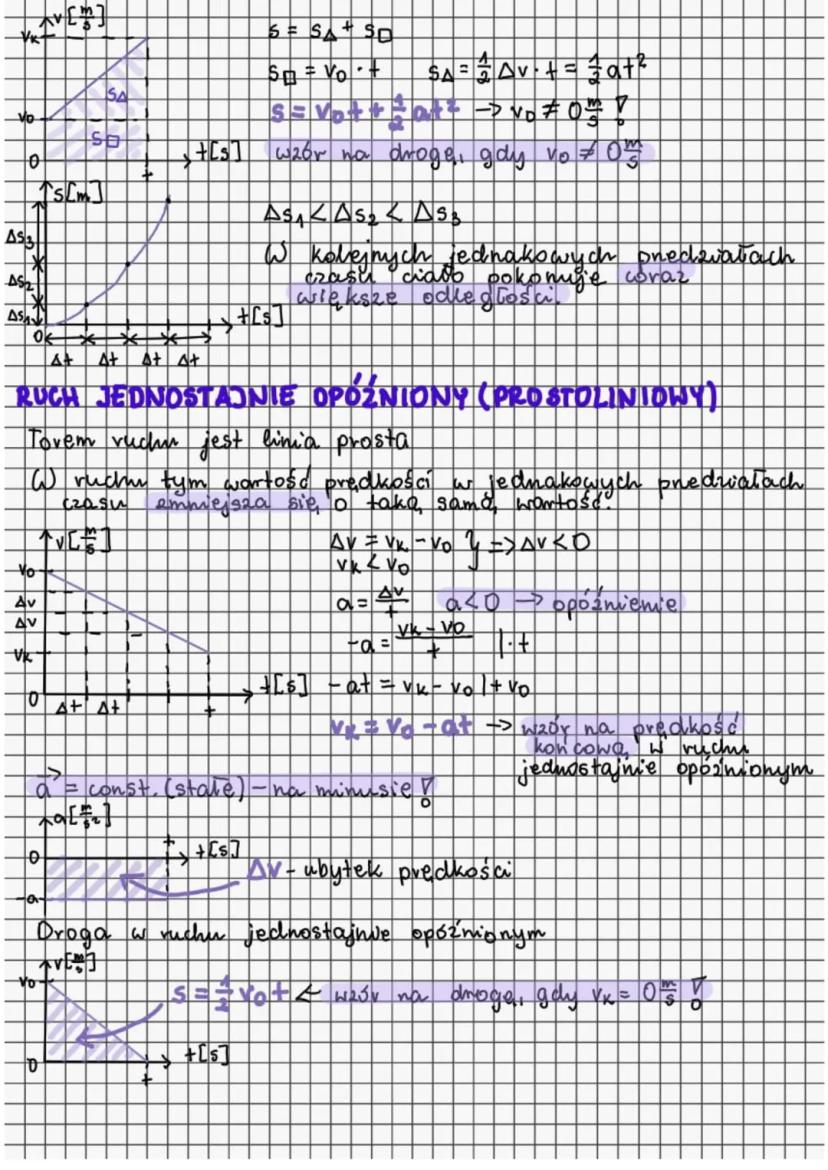 v[m/s]
vk
v0
0
s△
s□
t
t[s]
s = s△ + s□
s□ = v0 · t   s△ = 1/2 Δv · t = 1/2 at²
s = v0t + 1/2 at² → v0 ≠ 0 m/s !
wzór na drogę, gdy v0 ≠ 0 m/s
s[m]
Δs3
Δs2
Δs1
0
t[s]
Δt Δt Δt Δt
Δs1 < Δs2 < Δs3
W kolejnych jednakowych przedziałach
czasu ciało pokonuje coraz
większe odległości.
RUCH JEDNOSTAJNIE OPÓŹNIONY (PROSTOLINIOWY)
Torem ruchu jest linia prosta
W ruchu tym wartość prędkości w jednakowych przedziałach
czasu zmniejsza się o taką samą wartość.
v[m/s]
v0
Δv
Δv
vk
0
Δt Δt
t
t[s]
Δv = vk - v0 } => Δv < 0
vk < v0
a = Δv/t   a < 0 → opóźnienie
-a = vk - v0/t |·t
-at = vk - v0 | + v0
vk = v0 - at → wzór na prędkość
końcową w ruchu
jednostajnie opóźnionym
a→ = const. (stałe) - na minusie !
a[m/s²]
0
-a
t
t[s]
Δv - ubytek prędkości
Droga w ruchu jednostajnie opóźnionym
v[m/s]
v0
0
t
t[s]
s = 1/2 v0t ← wzór na drogę, gdy vk = 0 m/s !